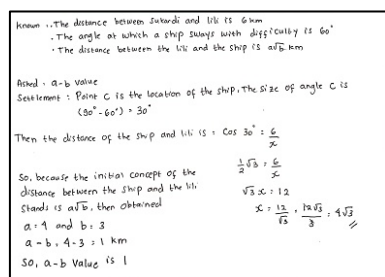 Known : . The distance between Sukardi and lili is 6 km
. The angle at which a ship sways with difficulty is 60°
. The distance between the lili and the ship is a√b km
Asked : a-b value
Settlement : Point C is the location of the ship, The size of angle C is
(90° - 60°) = 30°
Then the distance of the ship and lili is : Cos 30° = 6/x
1/2 √3 = 6/x
√3 x = 12
x = 12/√3 = 12√3/3 = 4√3
So, because the initial concept of the
distance between the ship and the lili
stands is a√b, then obtained
a = 4 and b = 3
a - b = 4-3 = 1 km
So, a-b Value is 1